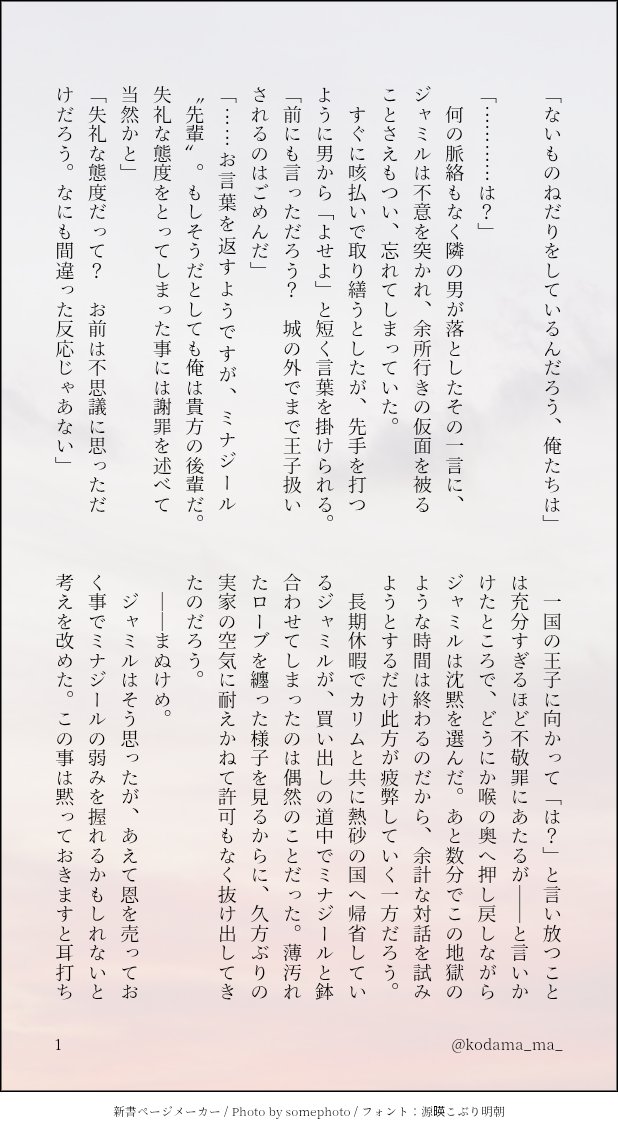 「ないものねだりをしているんだろう、俺たちは」
「…………は？」
　何の脈絡もなく隣の男が落としたその一言に、
ジャミルは不意を突かれ、余所行きの仮面を被る
ことさえもつい、忘れてしまっていた。
　すぐに咳払いで取り繕うとしたが、先手を打つ
ように男から「よせよ」と短く言葉を掛けられる。
「前にも言っただろう？　城の外でまで王子扱い
されるのはごめんだ」
「……お言葉を返すようですが、ミナジール
〝先輩〟。もしそうだとしても俺は貴方の後輩だ。
失礼な態度をとってしまった事には謝罪を述べて
当然かと」
「失礼な態度だって？　お前は不思議に思っただ
けだろう。なにも間違った反応じゃあない」
　一国の王子に向かって「は？」と言い放つこと
は充分すぎるほど不敬罪にあたるが――と言いか
けたところで、どうにか喉の奥へ押し戻しながら
ジャミルは沈黙を選んだ。あと数分でこの地獄の
ような時間は終わるのだから、余計な対話を試み
ようとするだけ此方が疲弊していく一方だろう。
　長期休暇でカリムと共に熱砂の国へ帰省してい
るジャミルが、買い出しの道中でミナジールと鉢
合わせてしまったのは偶然のことだった。薄汚れ
たローブを纏った様子を見るからに、久方ぶりの
実家の空気に耐えかねて許可もなく抜け出してき
たのだろう。
　――まぬけめ。
　ジャミルはそう思ったが、あえて恩を売ってお
く事でミナジールの弱みを握れるかもしれないと
考えを改めた。この事は黙っておきますと耳打ち
1
@kodama_ma_
新書ページメーカー / Photo by somephoto / フォント：源暎こぶり明朝